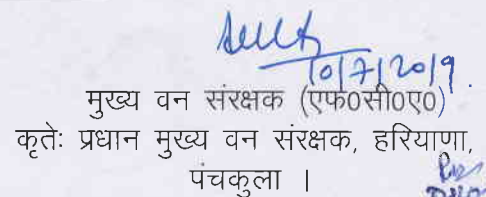 10/7/2019.
मुख्य वन संरक्षक (एफ0सी0ए0)
कृतेः प्रधान मुख्य वन संरक्षक, हरियाणा,
पंचकुला ।